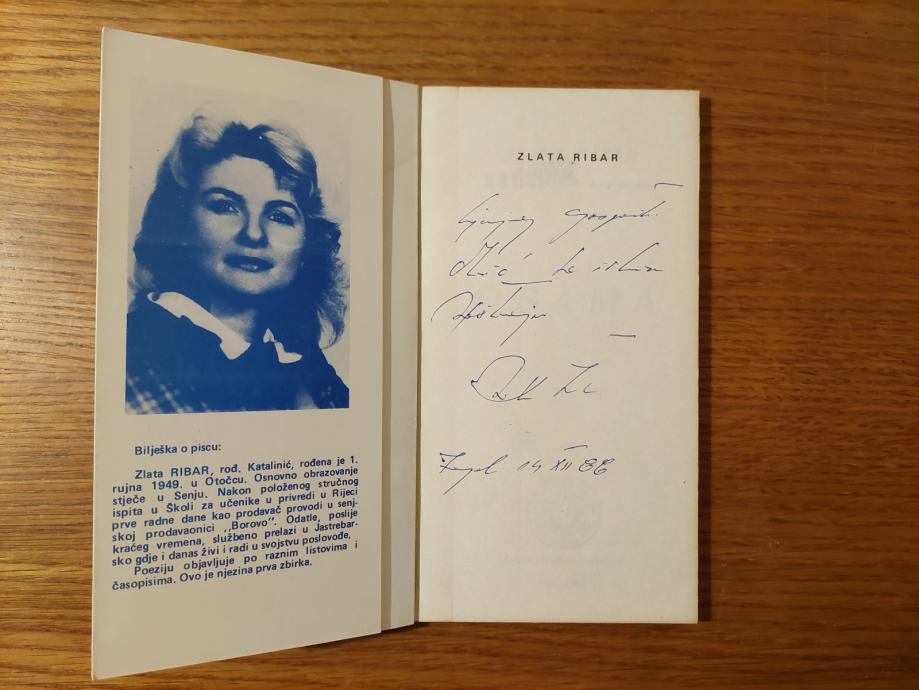 Bilješka o piscu:
Zlata RIBAR, rođ. Katalinić, rođena je 1.
rujna 1949. u Otočcu. Osnovno obrazovanje
stječe u Senju. Nakon položenog stručnog
ispita u Školi za učenike u privredi u Rijeci
prve radne dane kao prodavač provodi u senj-
skoj prodavaonici ,,Borovo". Odatle, poslije
kraćeg vremena, službeno prelazi u Jastrebar-
sko gdje i danas živi i radi u svojstvu poslovođe.
Poeziju objavljuje po raznim listovima i
časopisima. Ovo je njezina prva zbirka.
ZLATA RIBAR
14 XII 88